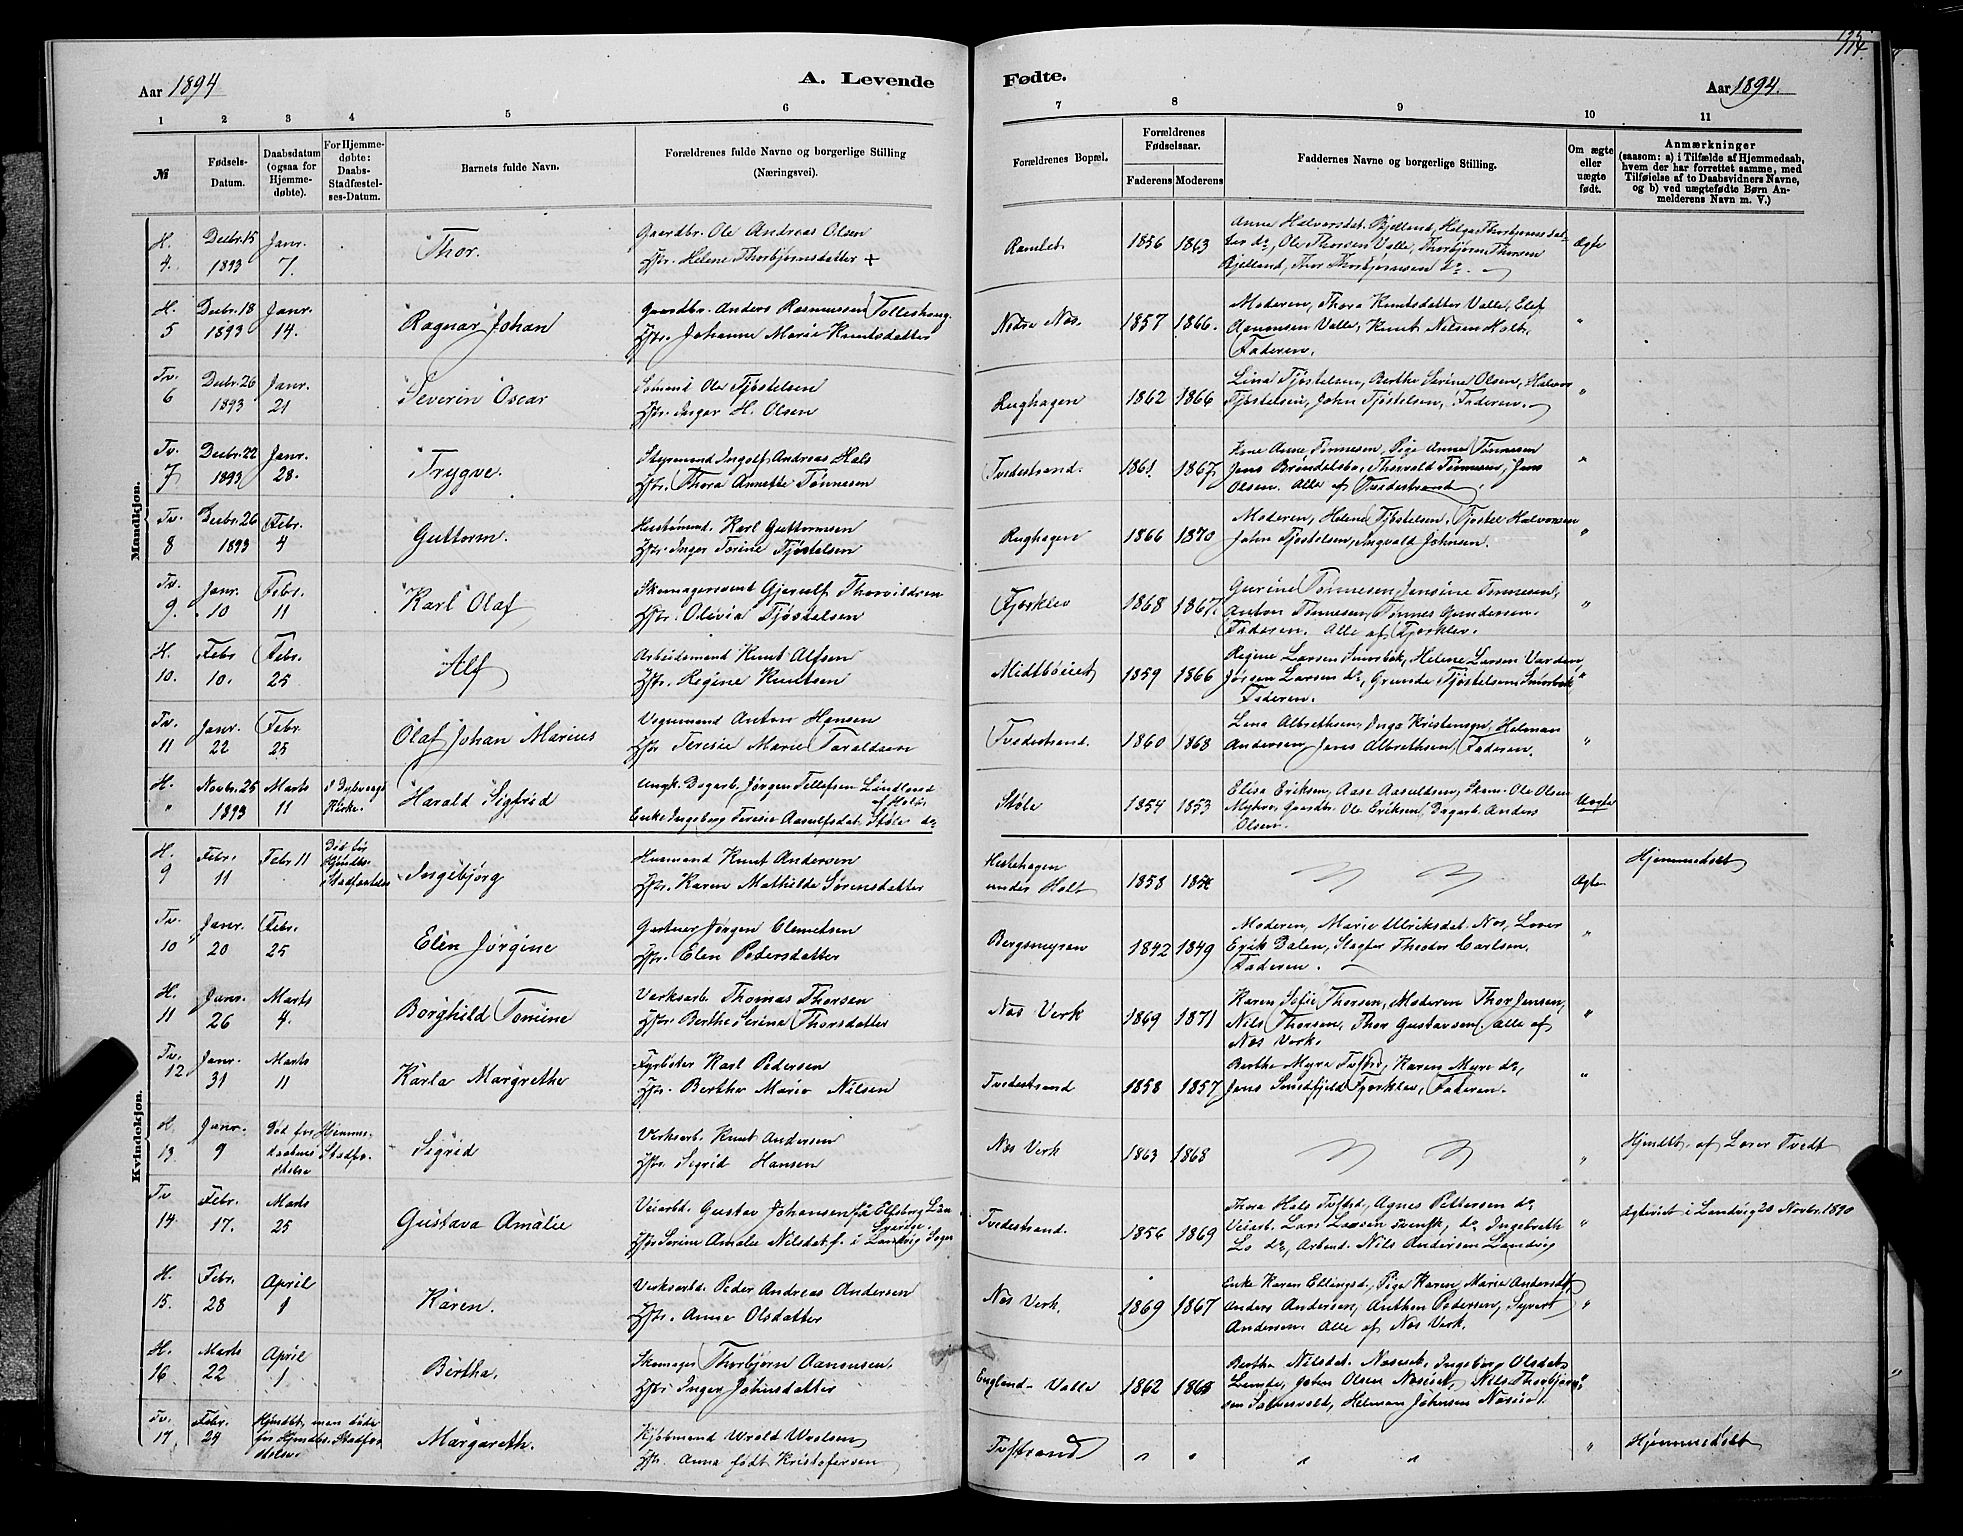 Aar 1894
A. Levende
Fødte.
Aar 1894.
1 2 3 4 5 6 7 8 9 10 11
№
Fødsels-Datum.
Daabsdatum (ogsaa for Hjemme-døbte).
For Hjemme-døbte: Daabs-Stadfæstel-ses-Datum.
Barnets fulde Navn.
Forældrenes fulde Navne og borgerlige Stilling
(Næringsvei).
Forældrenes Bopæl.
Forældrenes Fødselsaar.
Faderens Moderens
Faddernes Navne og borgerlige Stilling.
Om ægte eller uægte født.
Anmærkninger
(saasom: a) i Tilfælde af Hjemmedaab,
hvem der har forrettet samme, med
Tilføielse af to Daabsvidners Navne,
og b) ved uægtefødte Børn An-
melderens Navn m. V.)
Mandkjøn.
H. 4. Decbr. 15 1893 Janr. 7. Thor.
Gaardbr. Ole Andreas Olsen
Hstr. Helene Thorbjørnsdatter +
Ramlet 1856 1863
Anne Halvorsdat. Bjelland, Helga Thorbjørnsdat-
ter do, Ole Thorsen Valle, Thorbjørn Thorsen
Bjelland, Thor Thorbjørnsen do.
Ægte
H. 5 Decbr. 18 1893 Janr. 14. Ragnar Johan
Gaardbr. Anders Rasmussen
Hstr. Johanne Marie Knutsdatter
Nedre Nes. 1857 1866.
Moderen, Thora Knutsdatter Valle, Elef
Aanonsen Valle, Knut Nilsen Holt,
Faderen.
"
Tv. 6 Decbr. 26 1893 Janr. 21 Severin Oscar
Sømand Ole Tjøstelsen
Hstr. Inger H. Olsen
Rughagen 1862 1866
Lina Tjøstelsen, Berthe Serine Olsen, Halvor
Tjøstelsen, John Tjøstelsen, Faderen.
"
Tv. 7 Decbr. 22 1893 Janr. 28. Trygve.
Styrmand Ingolf Andreas Hals
Hstr. Thora Annette Tønnesen
Tvedestrand. 1861. 1867
Kone Anne Tønnesen, Pige Anna Tønnesen
Jens Brøndalsbo, Thorvald Tønnesen, Jens
Olsen. Alle af Tvedestrand.
"
Tv. 8 Decbr. 26 1893 Febr. 4 Guttorm.
Karl Guttormsen
Hstr. Inger Torine Tjøstelsen
Rughagen 1866 1870
Moderen, Helene Tjøstelsen, Tjøstel Halvorsen
John Tjøstelsen, Ingvald Johnsen.
"
Tv. 9. Janr. 10 Febr. 11 Karl Olaf
Skomagersvent Gjerulf Thorvildsen
Hstr. Olivia Tjøstelsen
Fjærklev 1868 1867.
Gurine Tønnesen, Jensine Tønnesen,
Anton Tønnesen, Tønnes Gundersen.
Faderen. Alle af Fjærklev.
"
H. 10. Febr 10. Febr. 25 Alf
Arbeidsmand Knut Alfsen
Hstr. Regine Knutsen
Midtbøiet 1859 1866
Regine Larsen Smørbæk, Helene Larsen Varden,
Jørgen Larsen do, Grunde Tjøstelsen Smørbæk
Faderen.
"
Tv. 11 Janr. 22 Febr. 25 Olaf Johan Marius
Vognmand Anton Hansen
Hstr Teresie Marie Taraldsen
Tvedestrand. 1860 1868
Lena Albrethsen, Inga Kristensen, Helman
Andersen, Jens Albrethsen, Faderen.
"
H. " Novbr. 25 1893 Marts 11 i Dybvaags Kirke. Harald Sigfred
Ungk. Dagarb. Jørgen Tellefsen Lindland af Holt
Enke Ingeborg Teresie Aasulfsdat. Støle do
Støle 1854 1853
Elisa Eriksen, Aase Aasuldsen, Skom. Ole Olsen
Myhre, Gaardbr. Ole Eriksen, Dagarb. Anders
Olsen.
Uægte
Kvindekjøn.
H. 9 Febr. 11 Febr 11 Død før Hjmdbs. Stadfæstelse Ingebjørg
Husmand Knut Andersen
Hstr. Karen Mathilde Sørensdatter
Hestehagen
under Holt 1858
Ægte
Hjemmedøbt
Tv. 10 Janr. 20 Febr. 25 Elen Jørgine
Gartner Jørgen Clemetsen
Hstr. Elen Pedersdatter
Bergsmyren 1842 1849
Moderen, Marie Ulriksdat. Nes, Lærer
Erik Dalen, Slagter Theodor Carlsen,
Faderen.
"
H. 11 Janr. 26 Marts 4. Borghild Tomine
Verksarb. Thomas Thorsen
Hstr. Berthe Serine Thorsdatter
Nes Verk 1869 1871
Karen Sofie Thorsen, Moderen Thor Jensen,
Nils Thorsen, Thor Gustavsen. Alle af
Nes Verk.
"
Tv. 12 Janr. 31 Marts 11 Karla Margrethe
Fyrbøder Karl Pedersen
Hstr. Berthe Marie Nilsen
Tvedestrand 1858 1857
Berthe Myre Tvstr., Karen Myre do,
Jens Smedfjeld Fjærklev, Faderen.
"
H. 13 Janr. 9 Død før Hjemme-daabens Stadfæ-stelse Sigrid
Verksarb. Knut Andersen
Hstr. Sigrid Hansen
Nes Verk 1863 1868
"
Hjmdbt. af Lærer Tvedt
Tv 14. Febr. 17. Marts 25 Gustava Amalie
Veiarbd. Gustav Johansen fra Sverige.
Hstr Serine Amalie Nilsdat. f. i Landvig Sogn
Tvedestrand. 1856 1869
Thora Hals Tvstrd, Agnes Pettersen do
Veiarb. Lars Larsen svensk, do Ingebreth
Lo do, Arbmd. Nils Andersen Landvig
"
Ægteviet i Landvig 20 Novbr. 1890
H. 15. Febr. 28 April 1 Karen.
Verksarbd. Peder Andreas Andersen
Hstr. Anne Olsdatter
Nes Verk. 1869 1867
Enke Karen Ellingsd., Pige Karen Marie Andersdt
Anders Andersen, Anthon Pedersen, Syvert
Andersen. Alle af Nes Verk.
"
H. 16 Marts 22 April 1 Bertha.
Skomager Thorbjørn Aanensen.
Hstr. Inger Johnsdatter
England - Valle 1862 1865
Bertha Nilsdat. Næset, Ingeborg Olsdat.
Lunde, John Olsen Næset, Nils Thorbjørn-
sen Salvesvold, Helman Johnsen Næset.
"
Tv. 17. Febr. 24 Hjmdbt, men døde før Hjmdbs. Stadfæ-stelse. Margareth.
Kjøbmand
Hstr. Anna født Kristofersen
Tvstrand " " " "
"
Hjemmedøbt